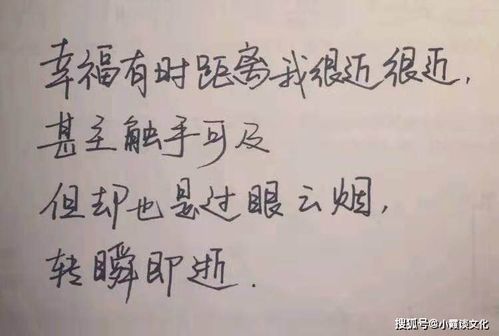 幸福有时距离我很近很近,
甚至触手可及
但却也是过眼云烟,
转瞬即逝.
搜狐号@小霞谈文化